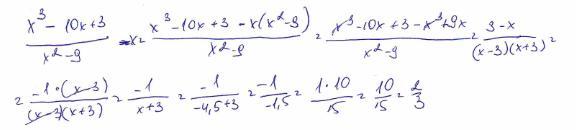 x³ - 10x + 3 / x² - 9 - x = x³ - 10x + 3 - x(x² - 9) / x² - 9 = x³ - 10x + 3 - x³ + 9x / x² - 9 = 3 - x / (x - 3)(x + 3) =
= -1 · (x - 3) / (x - 3)(x + 3) = -1 / x + 3 = -1 / -4,5 + 3 = -1 / -1,5 = 1·10 / 15 = 10 / 15 = 2 / 3